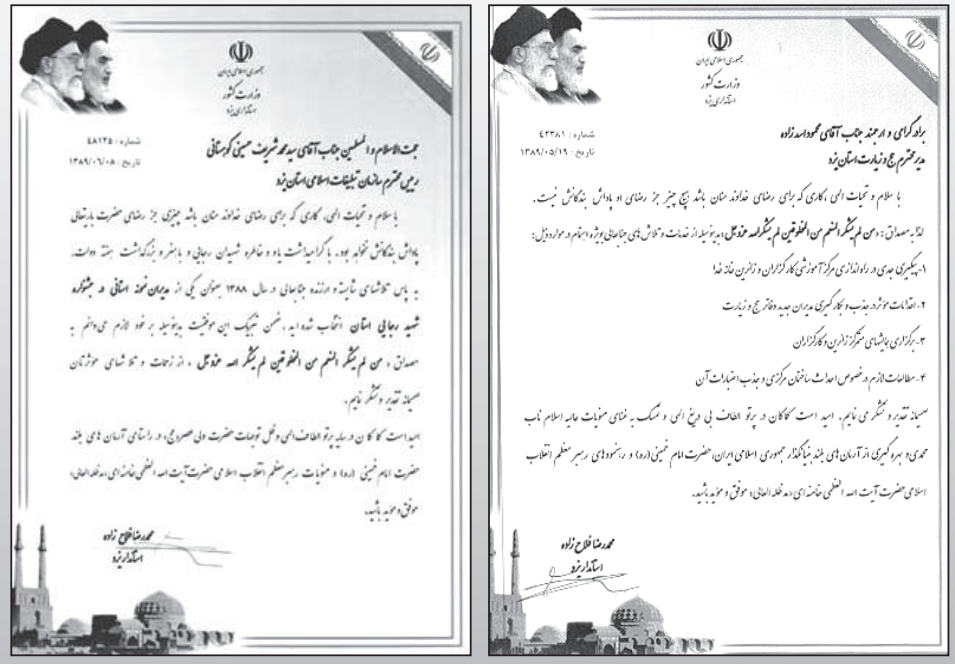 جمهوری اسلامی ایران
وزارت کشور
استانداری یزد
شماره : ٤٢٣٨١
تاریخ : ١٣٨٩/٠٥/١٩
برادر گرامی و ارجمند جناب آقای محمود اسد زاده
مدیر محترم حج و زیارت استان یزد
با سلام و تحیات الهی ، کاری که برای رضای خداوند منان باشد هیچ چیز جز رضای او پاداش بندگانش نیست.
لذا به مصداق : «من لم یشکر المنعم من المخلوقین لم یشکر الله عزوجل» بدینوسیله از خدمات و تلاش های جنابعالی بویژه اهتمام در موارد ذیل :
۱- پیگیری جدی در راه اندازی مرکز آموزشی کارگزاران و زائرین خانه خدا
۲- اقدامات موثر در جذب و بکارگیری مدیران جدید دفاتر حج و زیارت
۳- برگزاری همایشهای متمرکز زائرین و کارگزاران
۴- مطالعات لازم در خصوص احداث ساختمان مرکزی و جذب اعتبارات آن
صمیمانه تقدیر و تشکر می نمایم. امید است کماکان در پرتو الطاف بی دریغ الهی و تمسک به غنای منویات عالیه اسلام ناب
محمدی و بهره گیری از آرمان های بلند بنیانگذار جمهوری اسلامی ایران، حضرت امام خمینی (ره) و رهنمودهای رهبر معظم انقلاب
اسلامی حضرت آیت الله العظمی خامنه ای «مد ظله العالی» موفق و موید باشید.
محمدرضا فلاح زاده
استاندار یزد
جمهوری اسلامی ایران
وزارت کشور
استانداری یزد
شماره : ٤٨١٢٥
تاریخ : ١٣٨٩/٠٦/٠٨
حجت الاسلام و المسلمین جناب آقای سید محمد شریف حسینی کوهستانی
رییس محترم سازمان تبلیغات اسلامی استان یزد
با سلام و تحیات الهی، کاری که برای رضای خداوند منان باشد چیزی جز رضای حضرت باریتعالی
پاداش بندگانش نخواهد بود. با گرامیداشت یاد و خاطره شهیدان رجایی و باهنر و بزرگداشت هفته دولت،
به پاس تلاشهای شایسته و ارزنده جنابعالی در سال ۱۳۸۸ بعنوان یکی از مدیران نمونه استانی در جشنواره
شهید رجایی استان انتخاب شده اید، ضمن تبریک این موفقیت بدینوسیله بر خود لازم می دانم به
مصداق «من لم یشکر المنعم من المخلوقین لم یشکر الله عزوجل» ، از زحمات و تلاشهای موثرتان
صمیمانه تقدیر و تشکر نمایم.
امید است کماکان در سایه پرتو الطاف الهی و ظل توجهات حضرت ولی عصر«عج»، در راستای آرمان های بلند
حضرت امام خمینی (ره) و منویات رهبر معظم انقلاب اسلامی حضرت آیت الله العظمی خامنه ای «مد ظله العالی»
موفق و موید باشید.
محمدرضا فلاح زاده
استاندار یزد